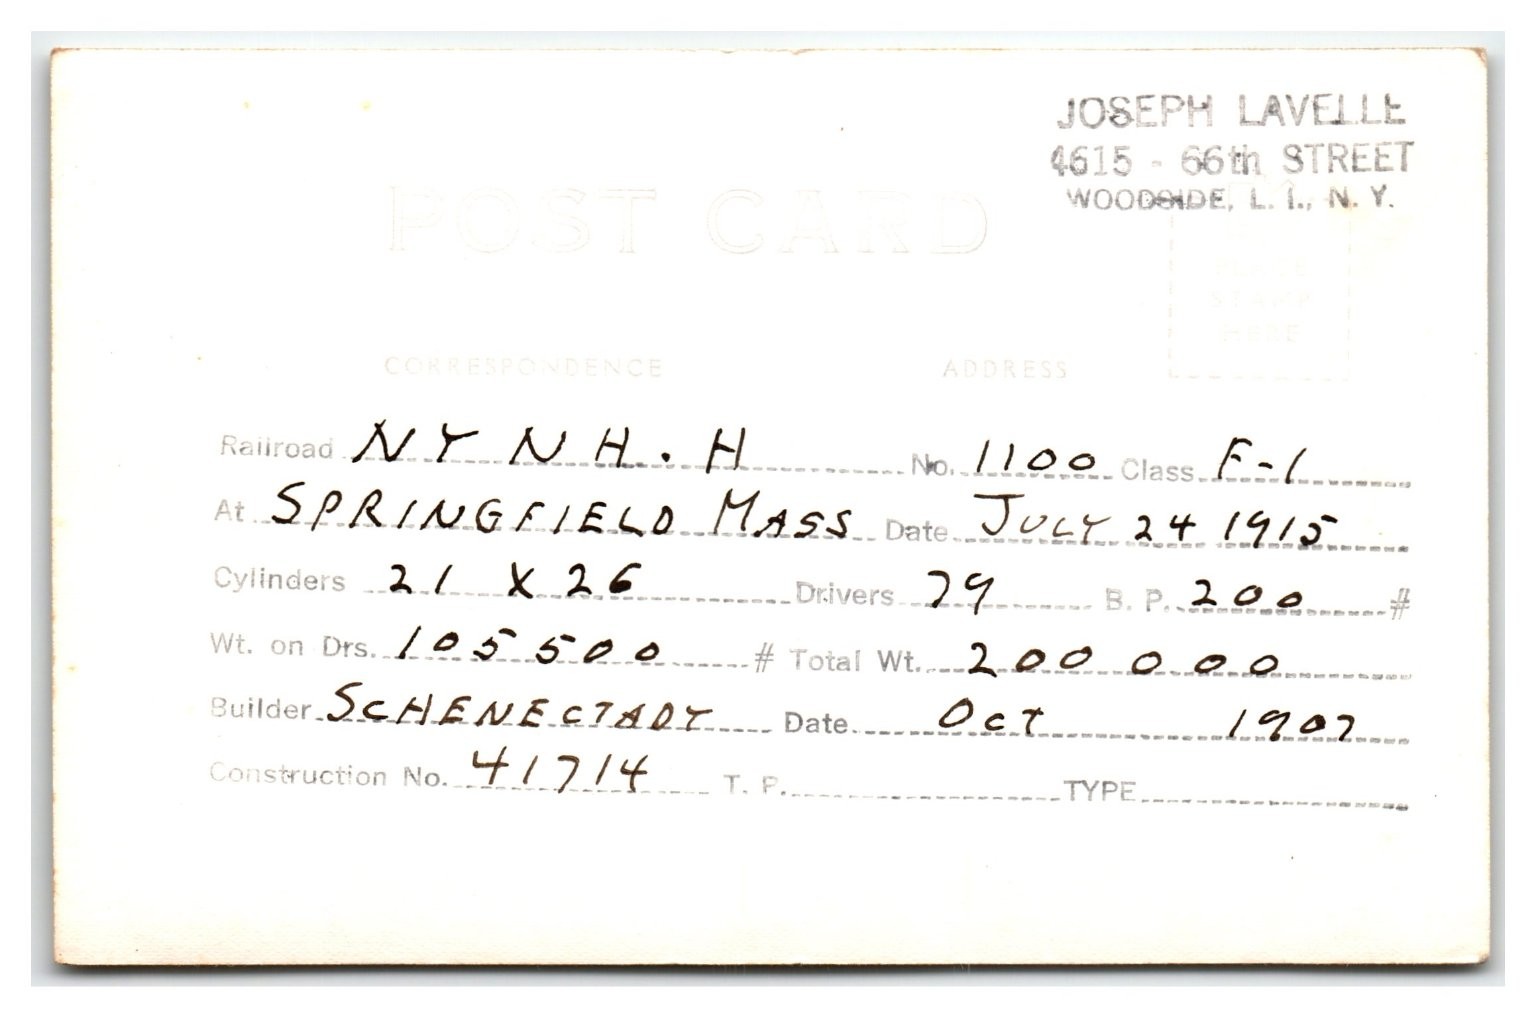 JOSEPH LAVELLE
4615 - 66th STREET
WOODSIDE, L. I., N. Y.
POST CARD
PLACE
STAMP
HERE
CORRESPONDENCE ADDRESS
Railroad NY NH.H No. 1100 Class F-1
At SPRINGFIELD MASS Date JULY 24 1915
Cylinders 21 X 26 Drivers 79 B. P. 200 #
Wt. on Drs. 105500 # Total Wt. 200000
Builder SCHENECTADY Date OCT 1907
Construction No. 41714 T. P. TYPE